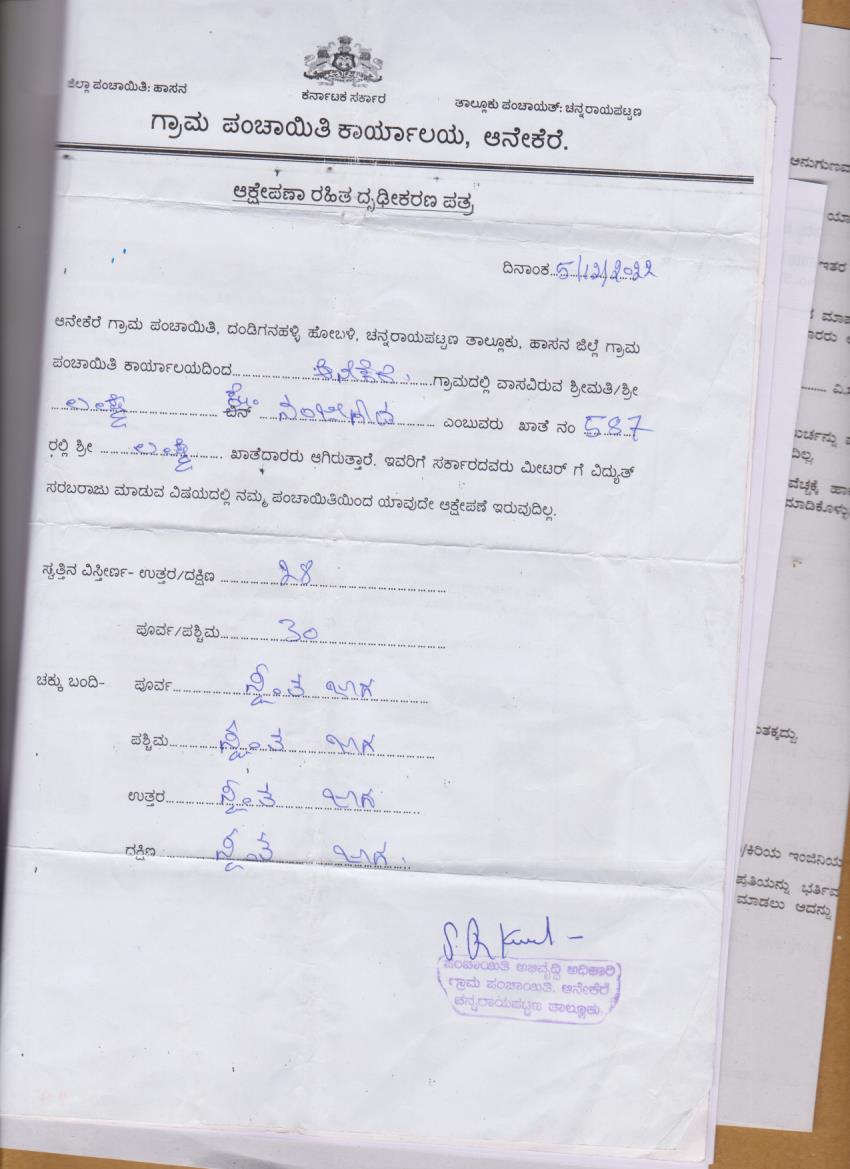 ಜಿಲ್ಲಾ ಪಂಚಾಯಿತಿ: ಹಾಸನ
ಕರ್ನಾಟಕ ಸರ್ಕಾರ
ತಾಲ್ಲೂಕು ಪಂಚಾಯತ್: ಚನ್ನರಾಯಪಟ್ಟಣ
ಗ್ರಾಮ ಪಂಚಾಯಿತಿ ಕಾರ್ಯಾಲಯ, ಆನೇಕೆರೆ.
ಆಕ್ಷೇಪಣಾ ರಹಿತ ದೃಢೀಕರಣ ಪತ್ರ
ದಿನಾಂಕ..5/12/2022
ಆನೇಕೆರೆ ಗ್ರಾಮ ಪಂಚಾಯಿತಿ, ದಂಡಿಗನಹಳ್ಳಿ ಹೋಬಳಿ, ಚನ್ನರಾಯಪಟ್ಟಣ ತಾಲ್ಲೂಕು, ಹಾಸನ ಜಿಲ್ಲೆ ಗ್ರಾಮ
ಪಂಚಾಯಿತಿ ಕಾರ್ಯಾಲಯದಿಂದ ಆನೆಕೆರೆ ಗ್ರಾಮದಲ್ಲಿ ವಾಸವಿರುವ ಶ್ರೀಮತಿ/ಶ್ರೀ
ಬಿನ್ ಎಂಬುವರು ಖಾತೆ ನಂ 587
ರಲ್ಲಿ ಶ್ರೀ ಖಾತೆದಾರರು ಆಗಿರುತ್ತಾರೆ. ಇವರಿಗೆ ಸರ್ಕಾರದವರು ಮೀಟರ್ ಗೆ ವಿದ್ಯುತ್
ಸರಬರಾಜು ಮಾಡುವ ವಿಷಯದಲ್ಲಿ ನಮ್ಮ ಪಂಚಾಯಿತಿಯಿಂದ ಯಾವುದೇ ಆಕ್ಷೇಪಣೆ ಇರುವುದಿಲ್ಲ.
ಸ್ವತ್ತಿನ ವಿಸ್ತೀರ್ಣ- ಉತ್ತರ/ದಕ್ಷಿಣ 28
ಪೂರ್ವ/ಪಶ್ಚಿಮ 30
ಚಕ್ಕು ಬಂದಿ- ಪೂರ್ವ ಸ್ವಂತ ಜಾಗ
ಪಶ್ಚಿಮ ಸ್ವಂತ ಜಾಗ
ಉತ್ತರ ಸ್ವಂತ ಜಾಗ
ದಕ್ಷಿಣ ಸ್ವಂತ ಜಾಗ
ಪಂಚಾಯಿತಿ ಅಭಿವೃದ್ಧಿ ಅಧಿಕಾರಿ
ಗ್ರಾಮ ಪಂಚಾಯಿತಿ. ಆನೇಕೆರೆ
ಚನ್ನರಾಯಪಟ್ಟಣ ತಾಲ್ಲೂಕು.